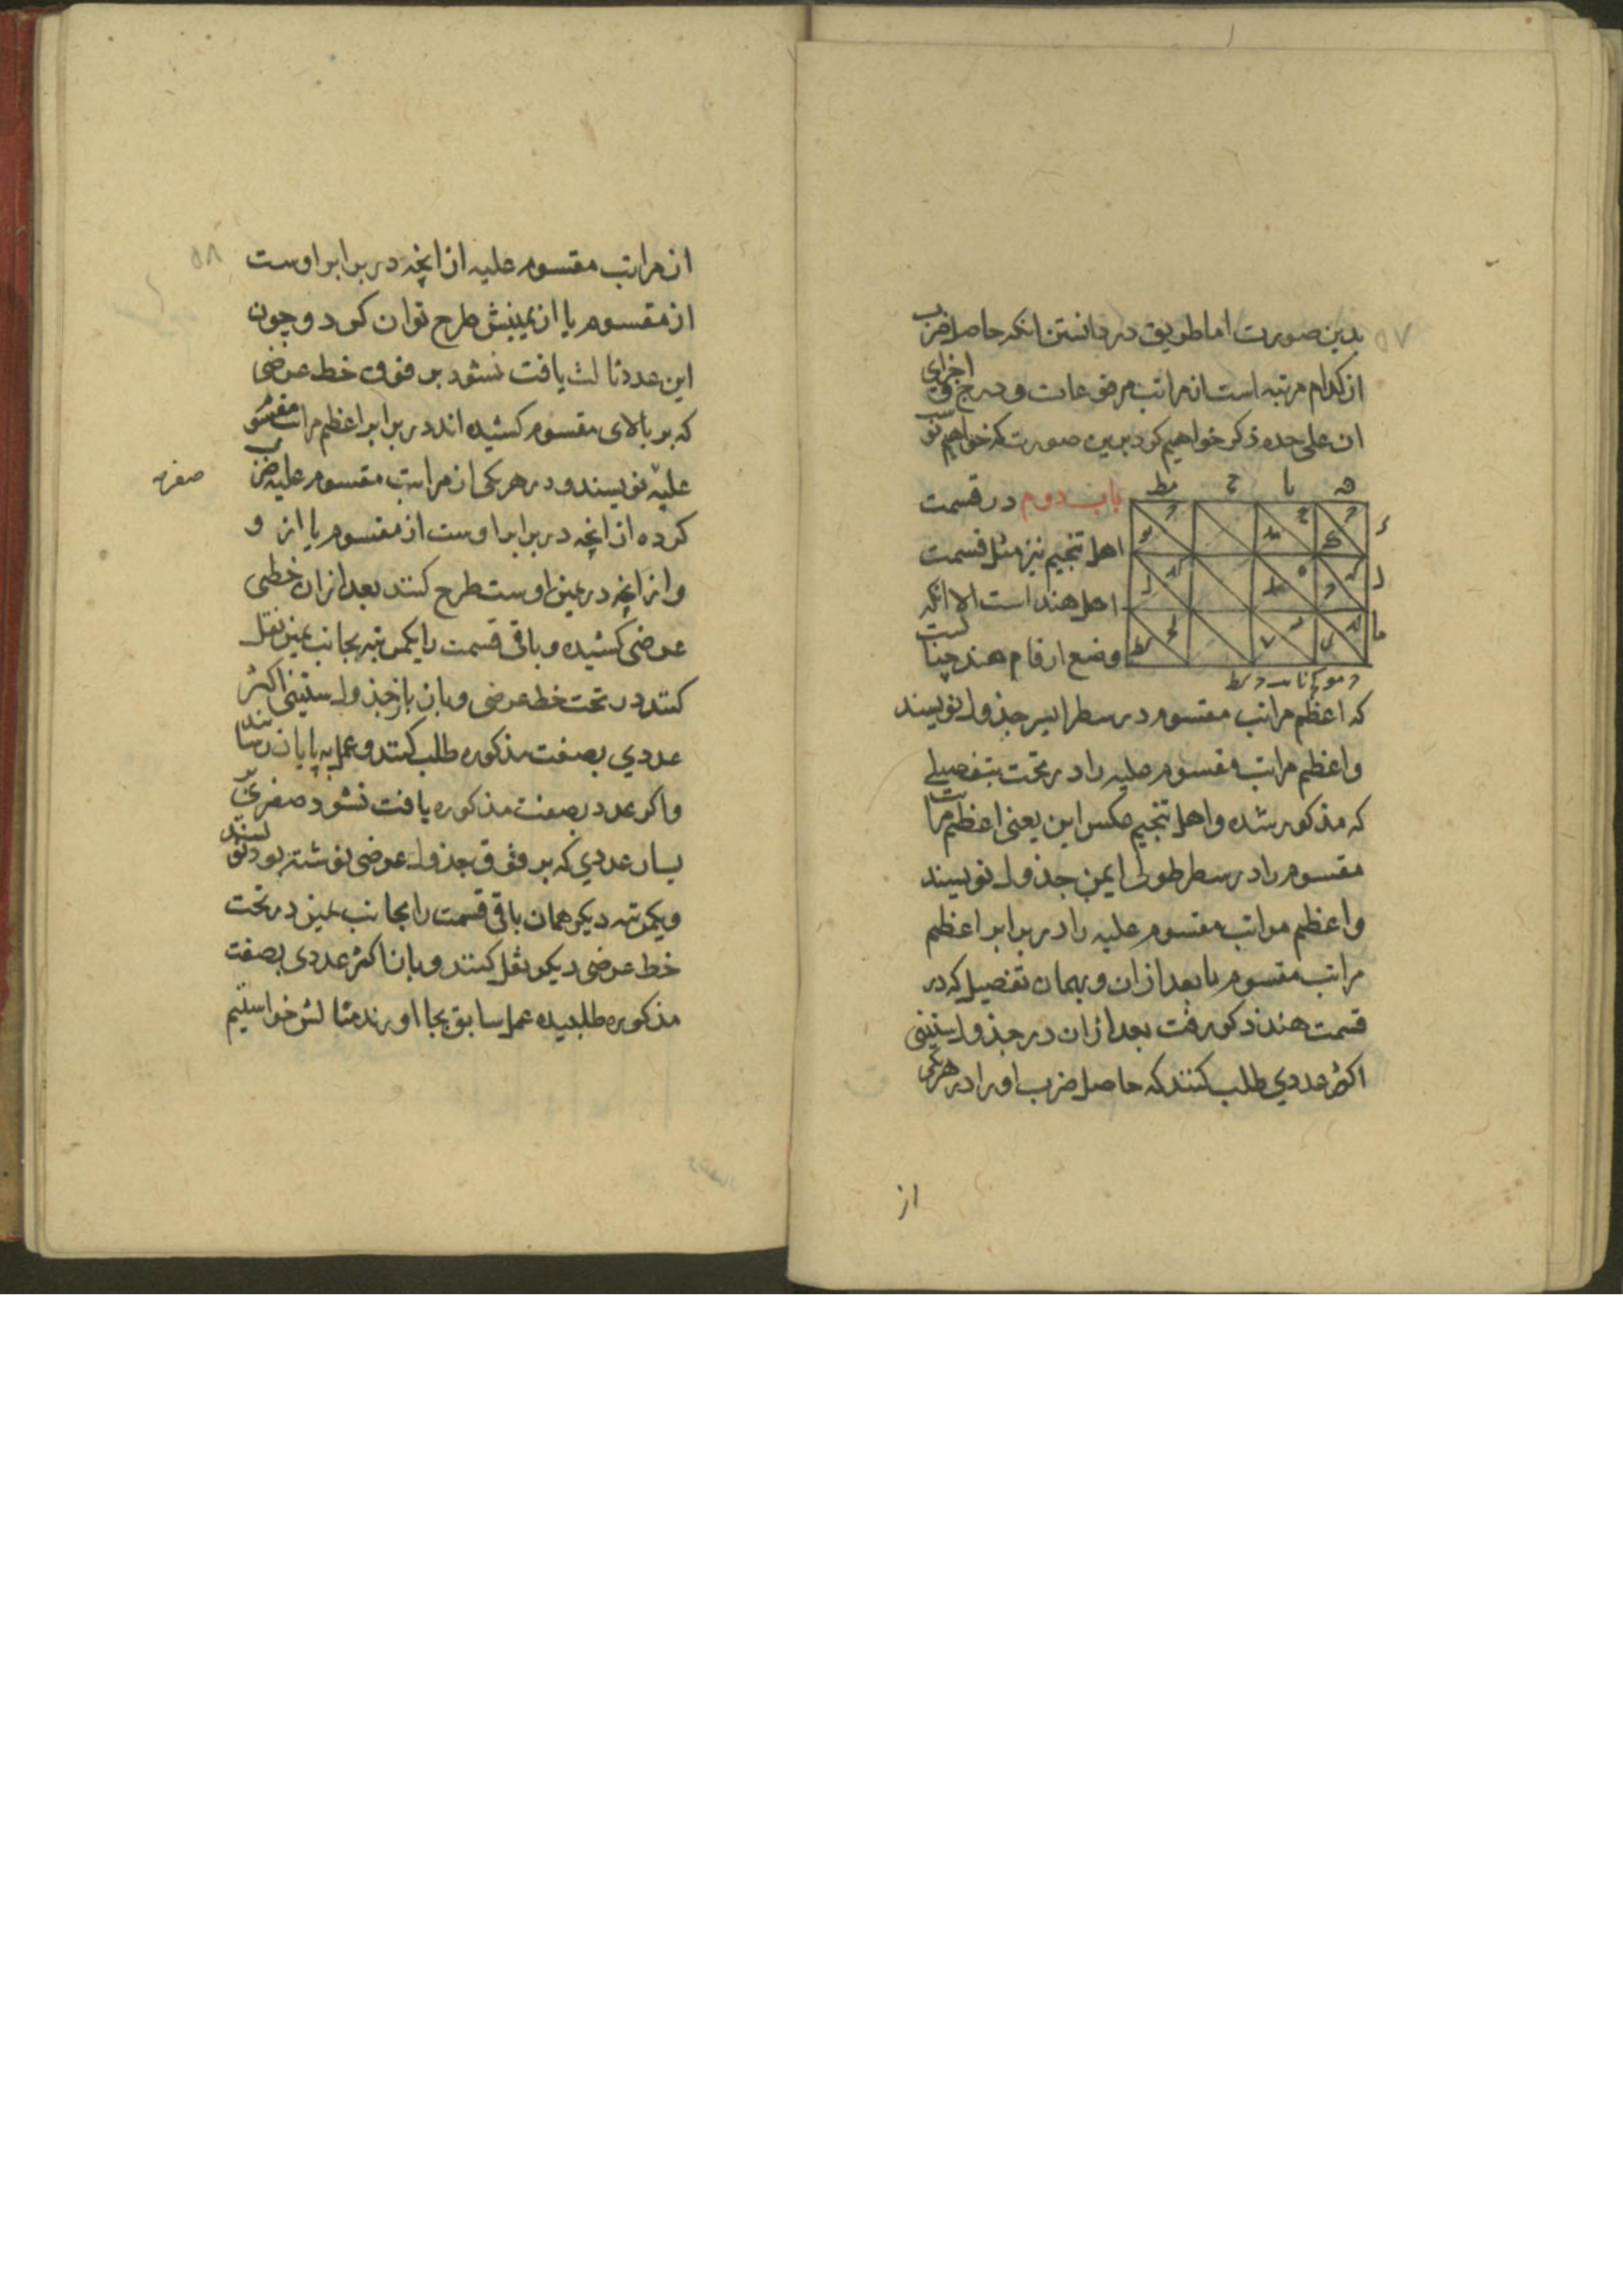 بدین صورت اما طریق در دانستن انکه حاصل ضرب
از کدام مرتبه است از مراتب مرفوعات و درج و اجزای
ان علی حده ذکر خواهیم کرد برین صورت که خواهیم
باب دوم در قسمت
اهل تنجیم نیز مثل قسمت
اهل هند است الا انکه
وضع ارقام هند چنانست
که اعظم مراتب مقسوم در سطر ایسر جذول نویسند
واعظم مراتب مقسوم علیه را در تحت بتفصیلی
که مذکور شده واهل تنجیم عکس این یعنی اعظم مراتب
مقسوم را در سطر طولی ایمن جذول نویسند
واعظم مراتب مقسوم علیه را در برابر اعظم
مراتب مقسوم یا بعد از ان وبهمان تفصیل که در
قسمت هند ذکر رفت بعد از ان در جذول ستینی
اکثر عددی طلب کنند که حاصل ضرب او را در هریکی
از
۵۷
۵۸
از مراتب مقسوم علیه از انچه در برابر اوست
از مقسوم یا از یمینش طرح توان کرد و چون
این عدد ثالث یافت نشود بر فوق خط عرضی
که بر بالای مقسوم کشیده اند در برابر اعظم مراتب مقسوم
علیه نویسند و در هریکی از مراتب مقسوم علیه ضرب
کرده از انچه در برابر اوست از مقسوم یا از و
واز انچه در یمین اوست طرح کنند بعد از ان خطی
عرضی کشیده و باقی قسمت را یکمرتبه بجانب یمین نقل
کنند در تحت خط عرضی وبان باز جذول ستینی اکثر
عددی بصفت مذکوره طلب کنند و عمل به پایان رسانند
واکر عدد بصفت مذکوره یافت نشود صفری بر
یسار عددی که بر فوق جذول عرضی نوشته بود نویسند
ویکمرتبه دیکر همان باقی قسمت را بجانب یمین در تحت
خط عرضی دیکر نقل کنند و بان اکثر عددی بصفت
مذکوره طلبیده عمل سابق بجا اورند مثالش خواستیم